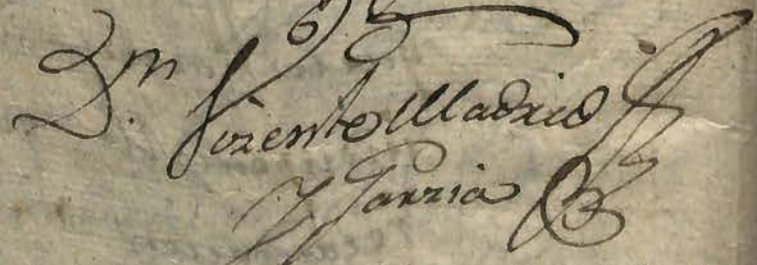 Dn. Vizente Madrid
y Garzia